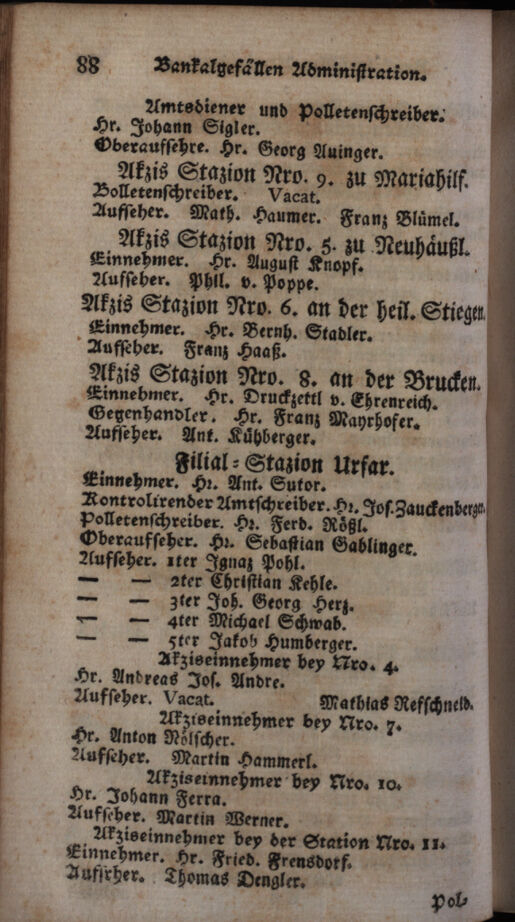 88 Bankalgefällen Administration.
Amtsdiener und Polletenschreiber.
Hr. Johann Sigler.
Oberaufsehre. Hr. Georg Auinger.
Akzis Stazion Nro. 9. zu Mariahilf.
Bolletenschreiber. Vacat.
Aufseher. Math. Haumer. Franz Blümel.
Akzis Stazion Nro. 5. zu Neuhäußl.
Einnehmer. Hr. August Knopf.
Aufseher. Phil. v. Poppe.
Akzis Stazion Nro. 6. an der heil. Stiegen.
Einnehmer. Hr. Bernh. Stadler.
Aufseher. Franz Haaß.
Akzis Stazion Nro. 8. an der Brucken.
Einnehmer. Hr. Druckzettl v. Ehrenreich.
Gegenhandler. Hr. Franz Mayrhofer.
Aufseher. Ant. Kühberger.
Filial-Stazion Urfar.
Einnehmer. Hr. Ant. Sutor.
Kontrolirender Amtschreiber. Hr. Jos. Zauckenberger.
Polletenschreiber. Hr. Ferd. Rößl.
Oberaufseher. Hr. Sebastian Gablinger.
Aufseher. 1ter Ignaz Pohl.
— — 2ter Christian Kehle.
— — 3ter Joh. Georg Herz.
— — 4ter Michael Schwab.
— — 5ter Jakob Humberger.
Akziseinnehmer bey Nro. 4.
Hr. Andreas Jos. Andre.
Aufseher. Vacat. Mathias Refschneid.
Akziseinnehmer bey Nro. 7.
Hr. Anton Nölscher.
Aufseher. Martin Hammerl.
Akziseinnehmer bey Nro. 10.
Hr. Johann Ferra.
Aufseher. Martin Werner.
Akziseinnehmer bey der Station Nro. 11.
Einnehmer. Hr. Fried. Frensdorf.
Aufseher. Thomas Dengler.
Pol-